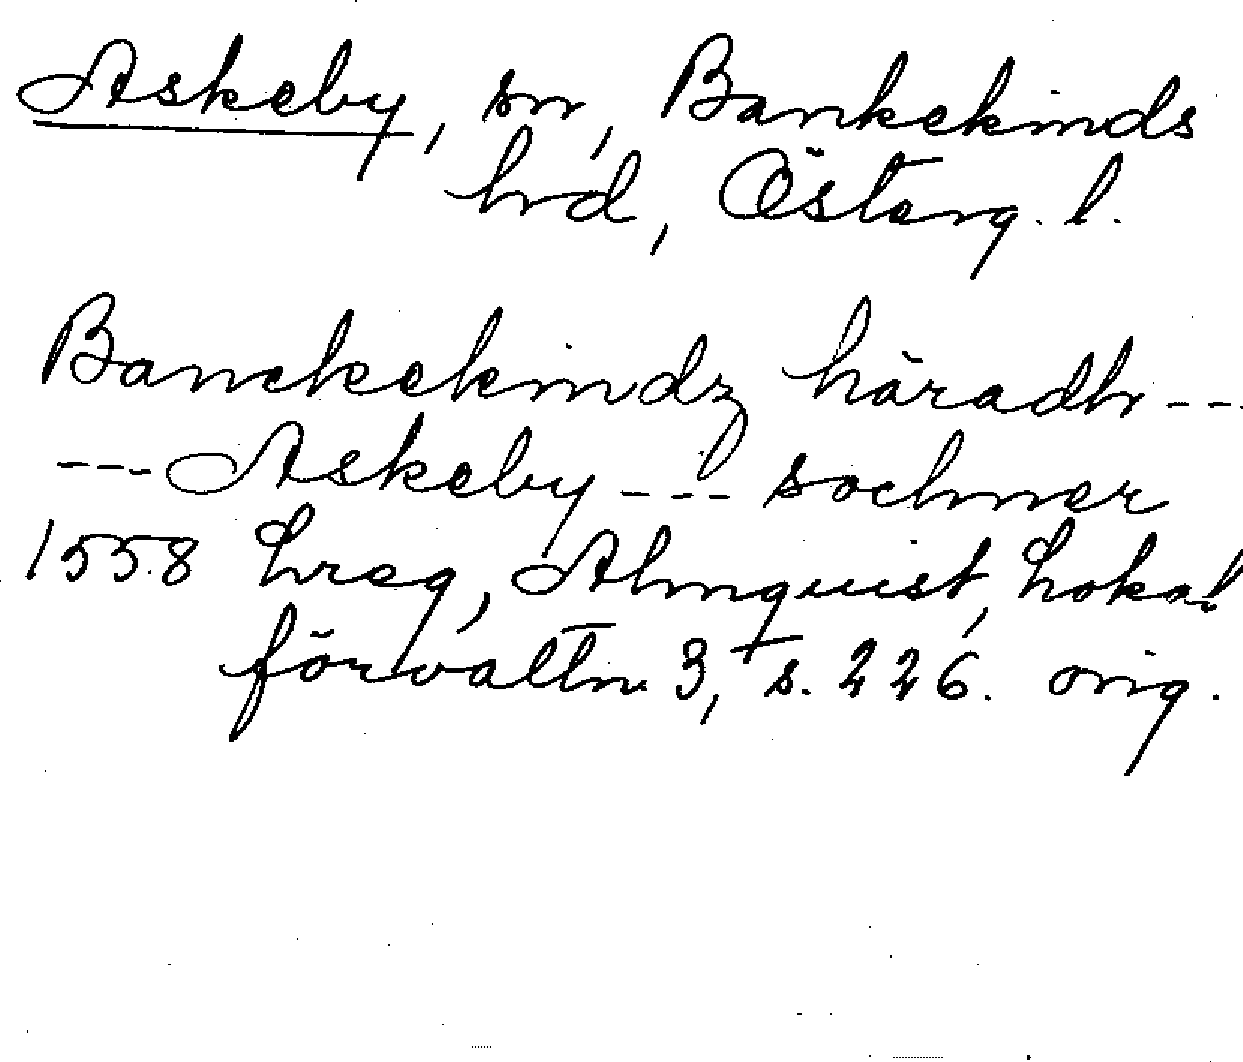 Askeby, sn, Bankekinds
hrd, Österg. l.
Banckekindz häradh ---
--- Askeby --- sochner
1558 Lreg, Almquist, Lokal
förvaltn. 3, s. 226. orig.